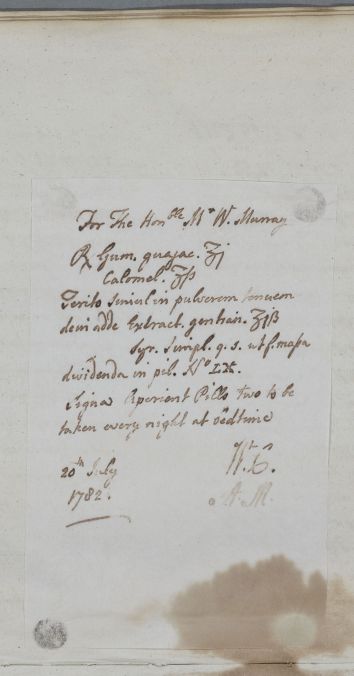 For The Honble Mr W. Murray
℞ Gum. guajac. ʒj
Calomel. ʒß
Terito simul in pulverem tenuem
dein adde Extract. gentian. ʒjß
Syr. Simpl. q. s. ut f. massa
dividenda in pil. No LX.
Signa Aperient Pills two to be
taken every night at bedtime
20th July
1782.
Wm C.
A. M.